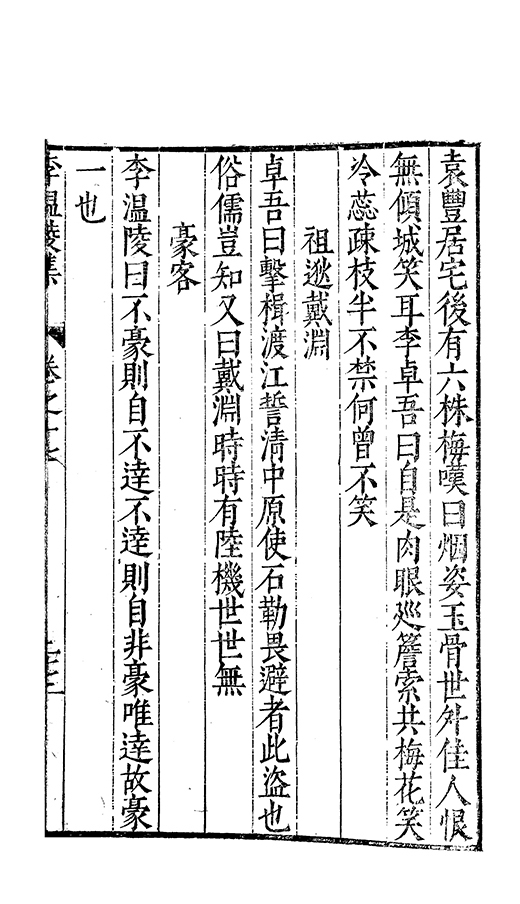 袁豐居宅後有六株梅嘆曰烟姿玉骨世外佳人恨
無傾城笑耳李卓吾曰自是肉眼廵簷索共梅花笑
冷蕊疎枝半不禁何曾不笑
祖逖戴淵
卓吾曰擊楫渡江誓清中原使石勒畏避者此盜也
俗儒豈知又曰戴淵時時有陸機世世無
豪客
李温陵曰不豪則自不達不達則自非豪唯達故豪
一也
李温陵集 卷之十七